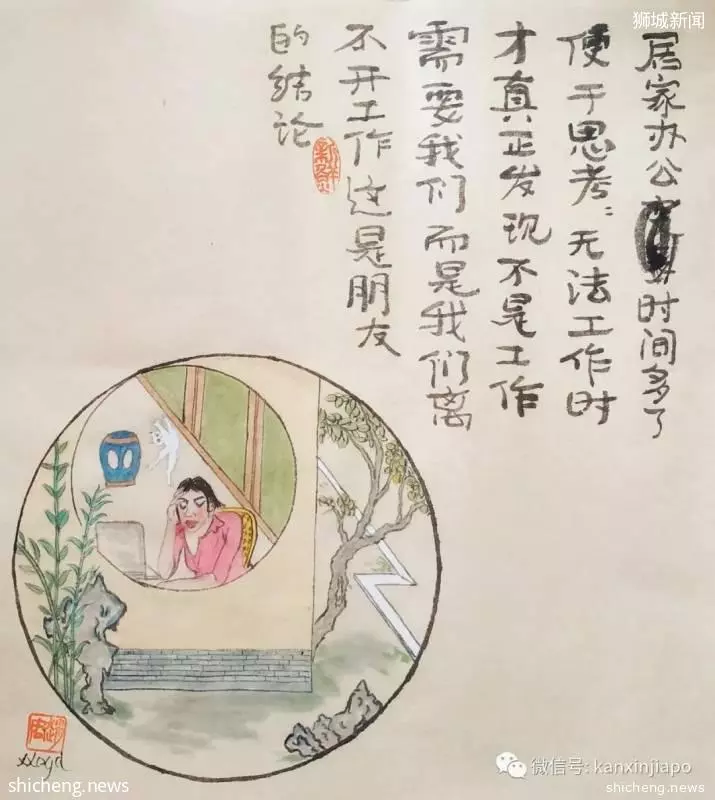 狮城新闻
居家办公时间多了
便于思考:无法工作时
才真正发现不是工作
需要我们而是我们离
不开工作这是朋友
的结论
微信号: kanxinjiapo
shicheng.news
shicheng.news